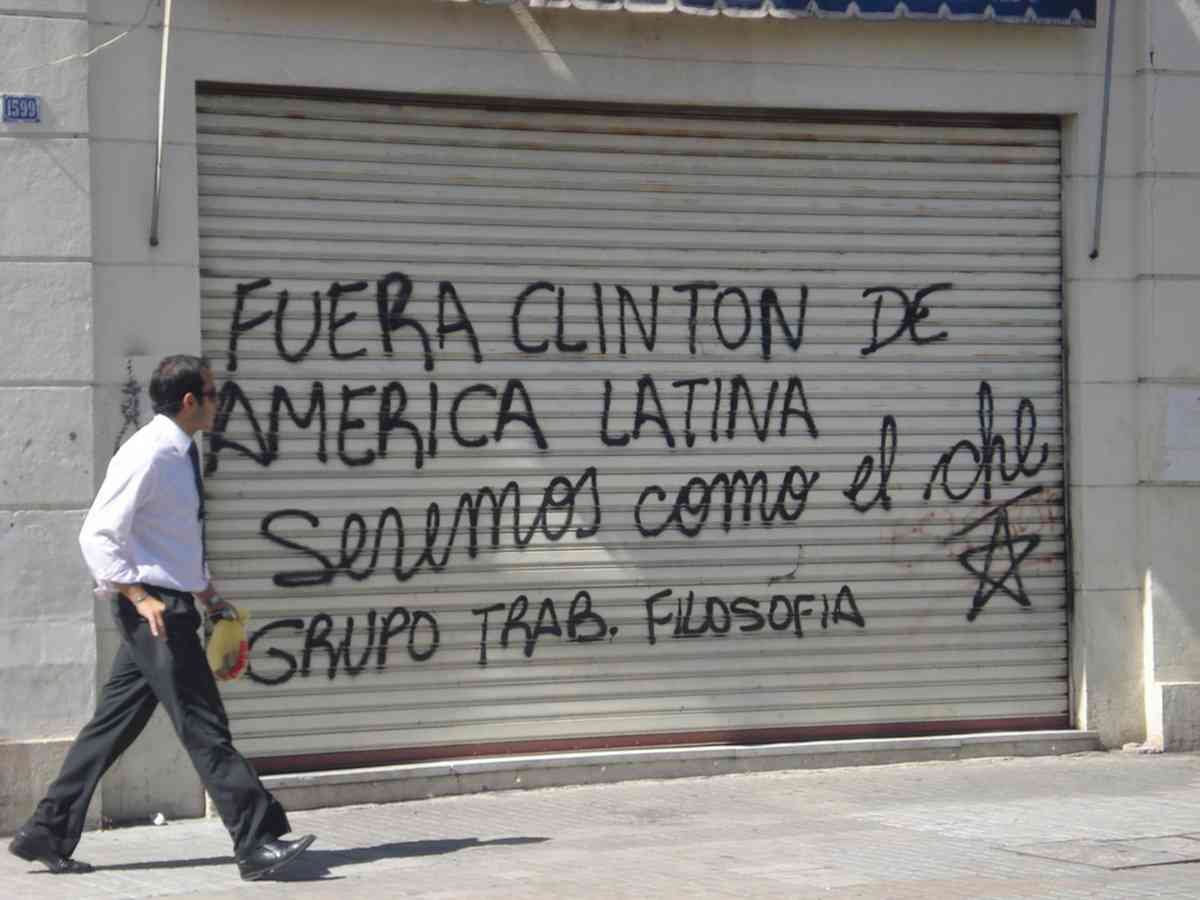 1599
FUERA CLINTON DE
AMERICA LATINA
Seremos como el che
GRUPO TRAB. FILOSOFIA